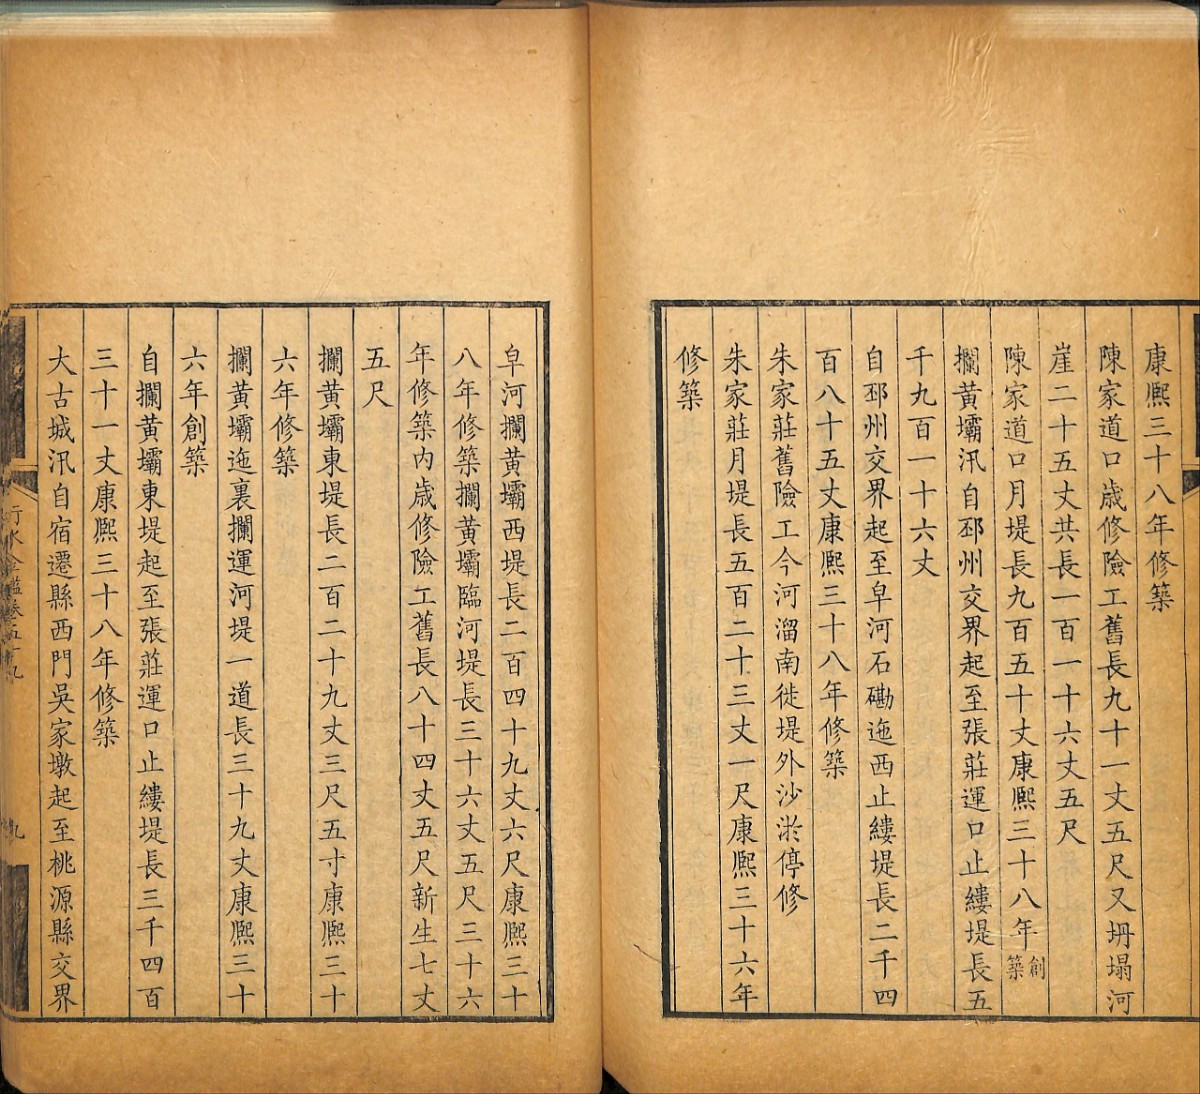 康熙三十八年修築
陳家道口歲修險工舊長九十一丈五尺又坍塌河
崖二十五丈共長一百一十六丈五尺
陳家道口月堤長九百五十丈康熙三十八年創築
攔黃壩汛自邳州交界起至張莊運口止縷堤長五
千九百一十六丈
自邳州交界起至皁河石磡迤西止縷堤長二千四
百八十五丈康熙三十八年修築
朱家莊舊險工今河溜南徙堤外沙淤停修
朱家莊月堤長五百二十三丈一尺康熙三十六年
修築
皁河攔黃壩西堤長二百四十九丈六尺康熙三十
八年修築攔黃壩臨河堤長三十六丈五尺三十六
年修築內歲修險工舊長八十四丈五尺新生七丈
五尺
攔黃壩東堤長二百二十九丈三尺五寸康熙三十
六年修築
攔黃壩迤裏攔運河堤一道長三十九丈康熙三十
六年創築
自攔黃壩東堤起至張莊運口止縷堤長三千四百
三十一丈康熙三十八年修築
大古城汛自宿遷縣西門吳家墩起至桃源縣交界
行水金鑑卷五十九
九